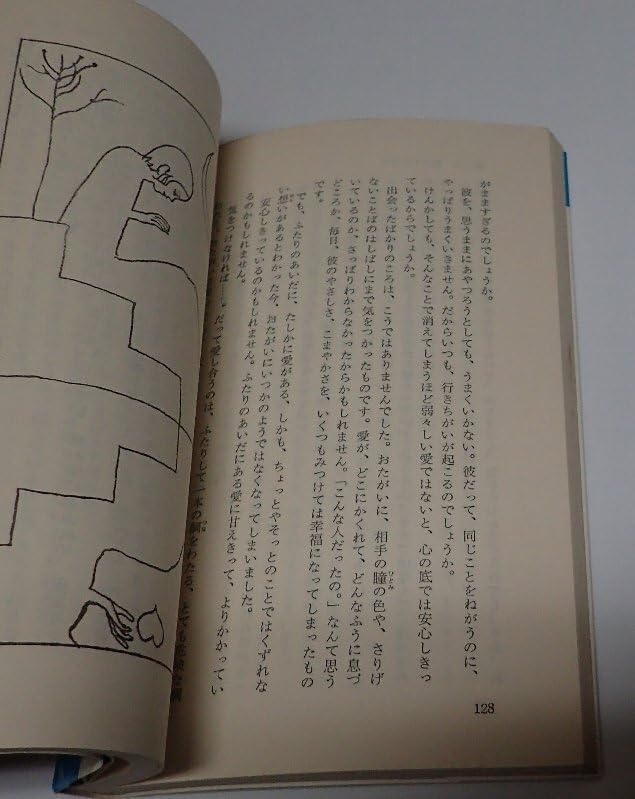 がまますぎるのでしょうか。
彼を、思うままにあやつろうとしても、うまくいかない。彼だって、同じことをねがうのに、
やっぱりうまくいきません。だからいつも、行きちがいが起こるのでしょうか。
けんかしても、そんなことで消えてしまうほど弱々しい愛ではないと、心の底では安心しきっ
ているからでしょうか。
出会ったばかりのころは、こうではありませんでした。おたがいに、相手の瞳の色や、さりげ
ないことばのはしばしにまで気をつかったものです。愛が、どこにかくれて、どんなふうに息づ
いているのか、さっぱりわからなかったからかもしれません。「こんな人だったの。」なんて思う
どころか、毎日、彼のやさしさ、こまやかさを、いくつもみつけては幸福になってしまったもの
です。
でも、ふたりのあいだに、たしかに愛がある、しかも、ちょっとやそっとのことではくずれな
い想いがあるとわかった今、おたがいにいつかのようではなくなってしまいました。
安心しきっているのかもしれません。ふたりのあいだにある愛に甘えきって、よりかかってい
るのかもしれません。
気をつけなければ――。だって愛し合うのは、ふたりして一本の綱をわたる、とても
128